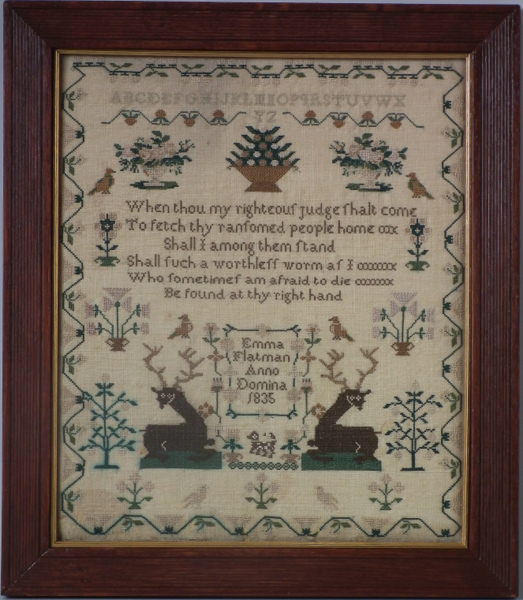 ABCDEFGHIJKLMNOPQRSTUVWX
YZ
When thou my righteouſ judge ſhalt come
To fetch thy ranſomed people home xxx
Shall I among them ſtand
Shall ſuch a worthleſſ worm aſ I xxxxxxx
Who ſometimeſ am afraid to die xxxxxxx
Be found at thy right hand
Emma
Flatman
Anno
Domina
1835